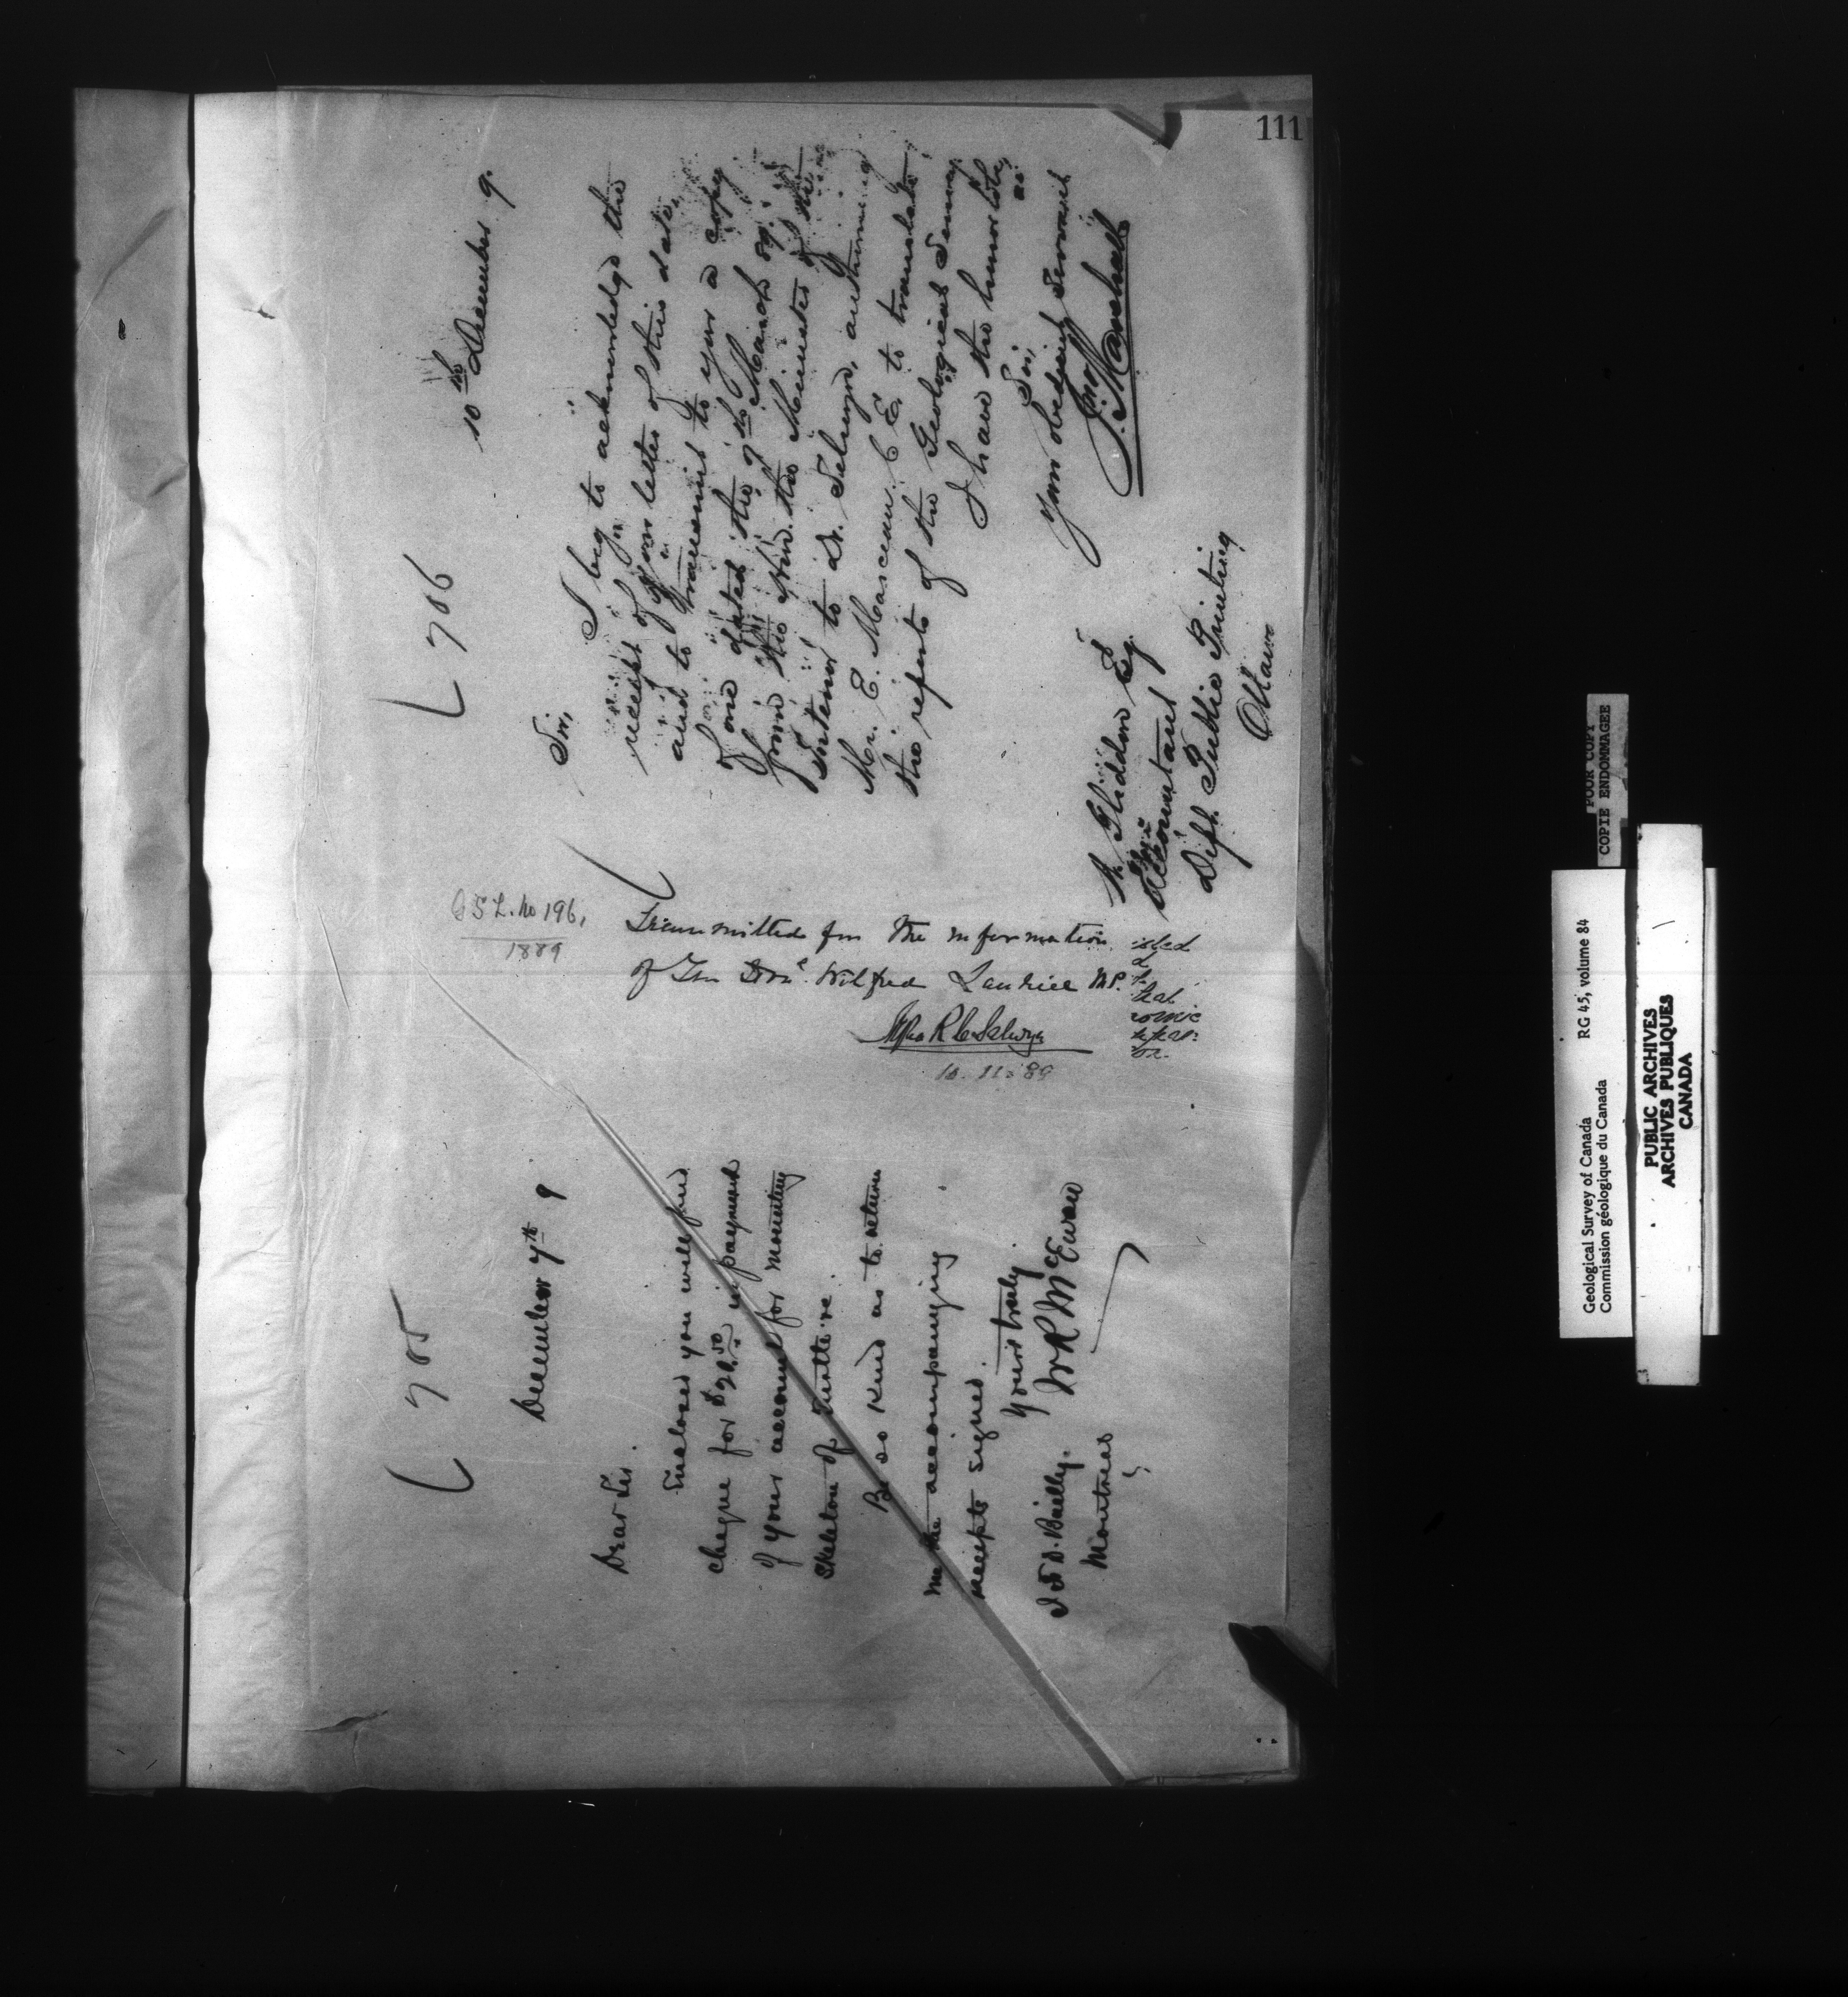 111
705
December 7th 9
Dear Sir.
Enclosed you will find
cheque for $20.50 in payment
of your account for mounting
skeleton of Turtle
Be so kind as to return
me the accompanying
receipts signed.
Yours truly
W R McEwan
J. D. Bailly.
Montreal
G S L. No 196,
1889
Transmitted for the information
of The Honl. Wilfred Laurier MP.
Alfred R C Selwyn
10. 11. 89
706
10th December 9.
Sir,
I beg to acknowledge the
receipt of your letter of this date,
and to transmit to you a copy
of one dated the 9th March 89.
from the Hon. the Minister of the
Interior to Dr. Selwyn, authorising
Mr. E. Marceau. C. E. to translate
the reports of the Geological Survey
I have the honor to be,
Sir,
Your obedient Servant
Jno Marshall
Gliddon Esq.
Accountant
Dept. Public Printing
Ottawa
POOR COPY
COPIE ENDOMMAGEE
Geological Survey of Canada RG 45, volume 84
Commission géologique du Canada
PUBLIC ARCHIVES
ARCHIVES PUBLIQUES
CANADA